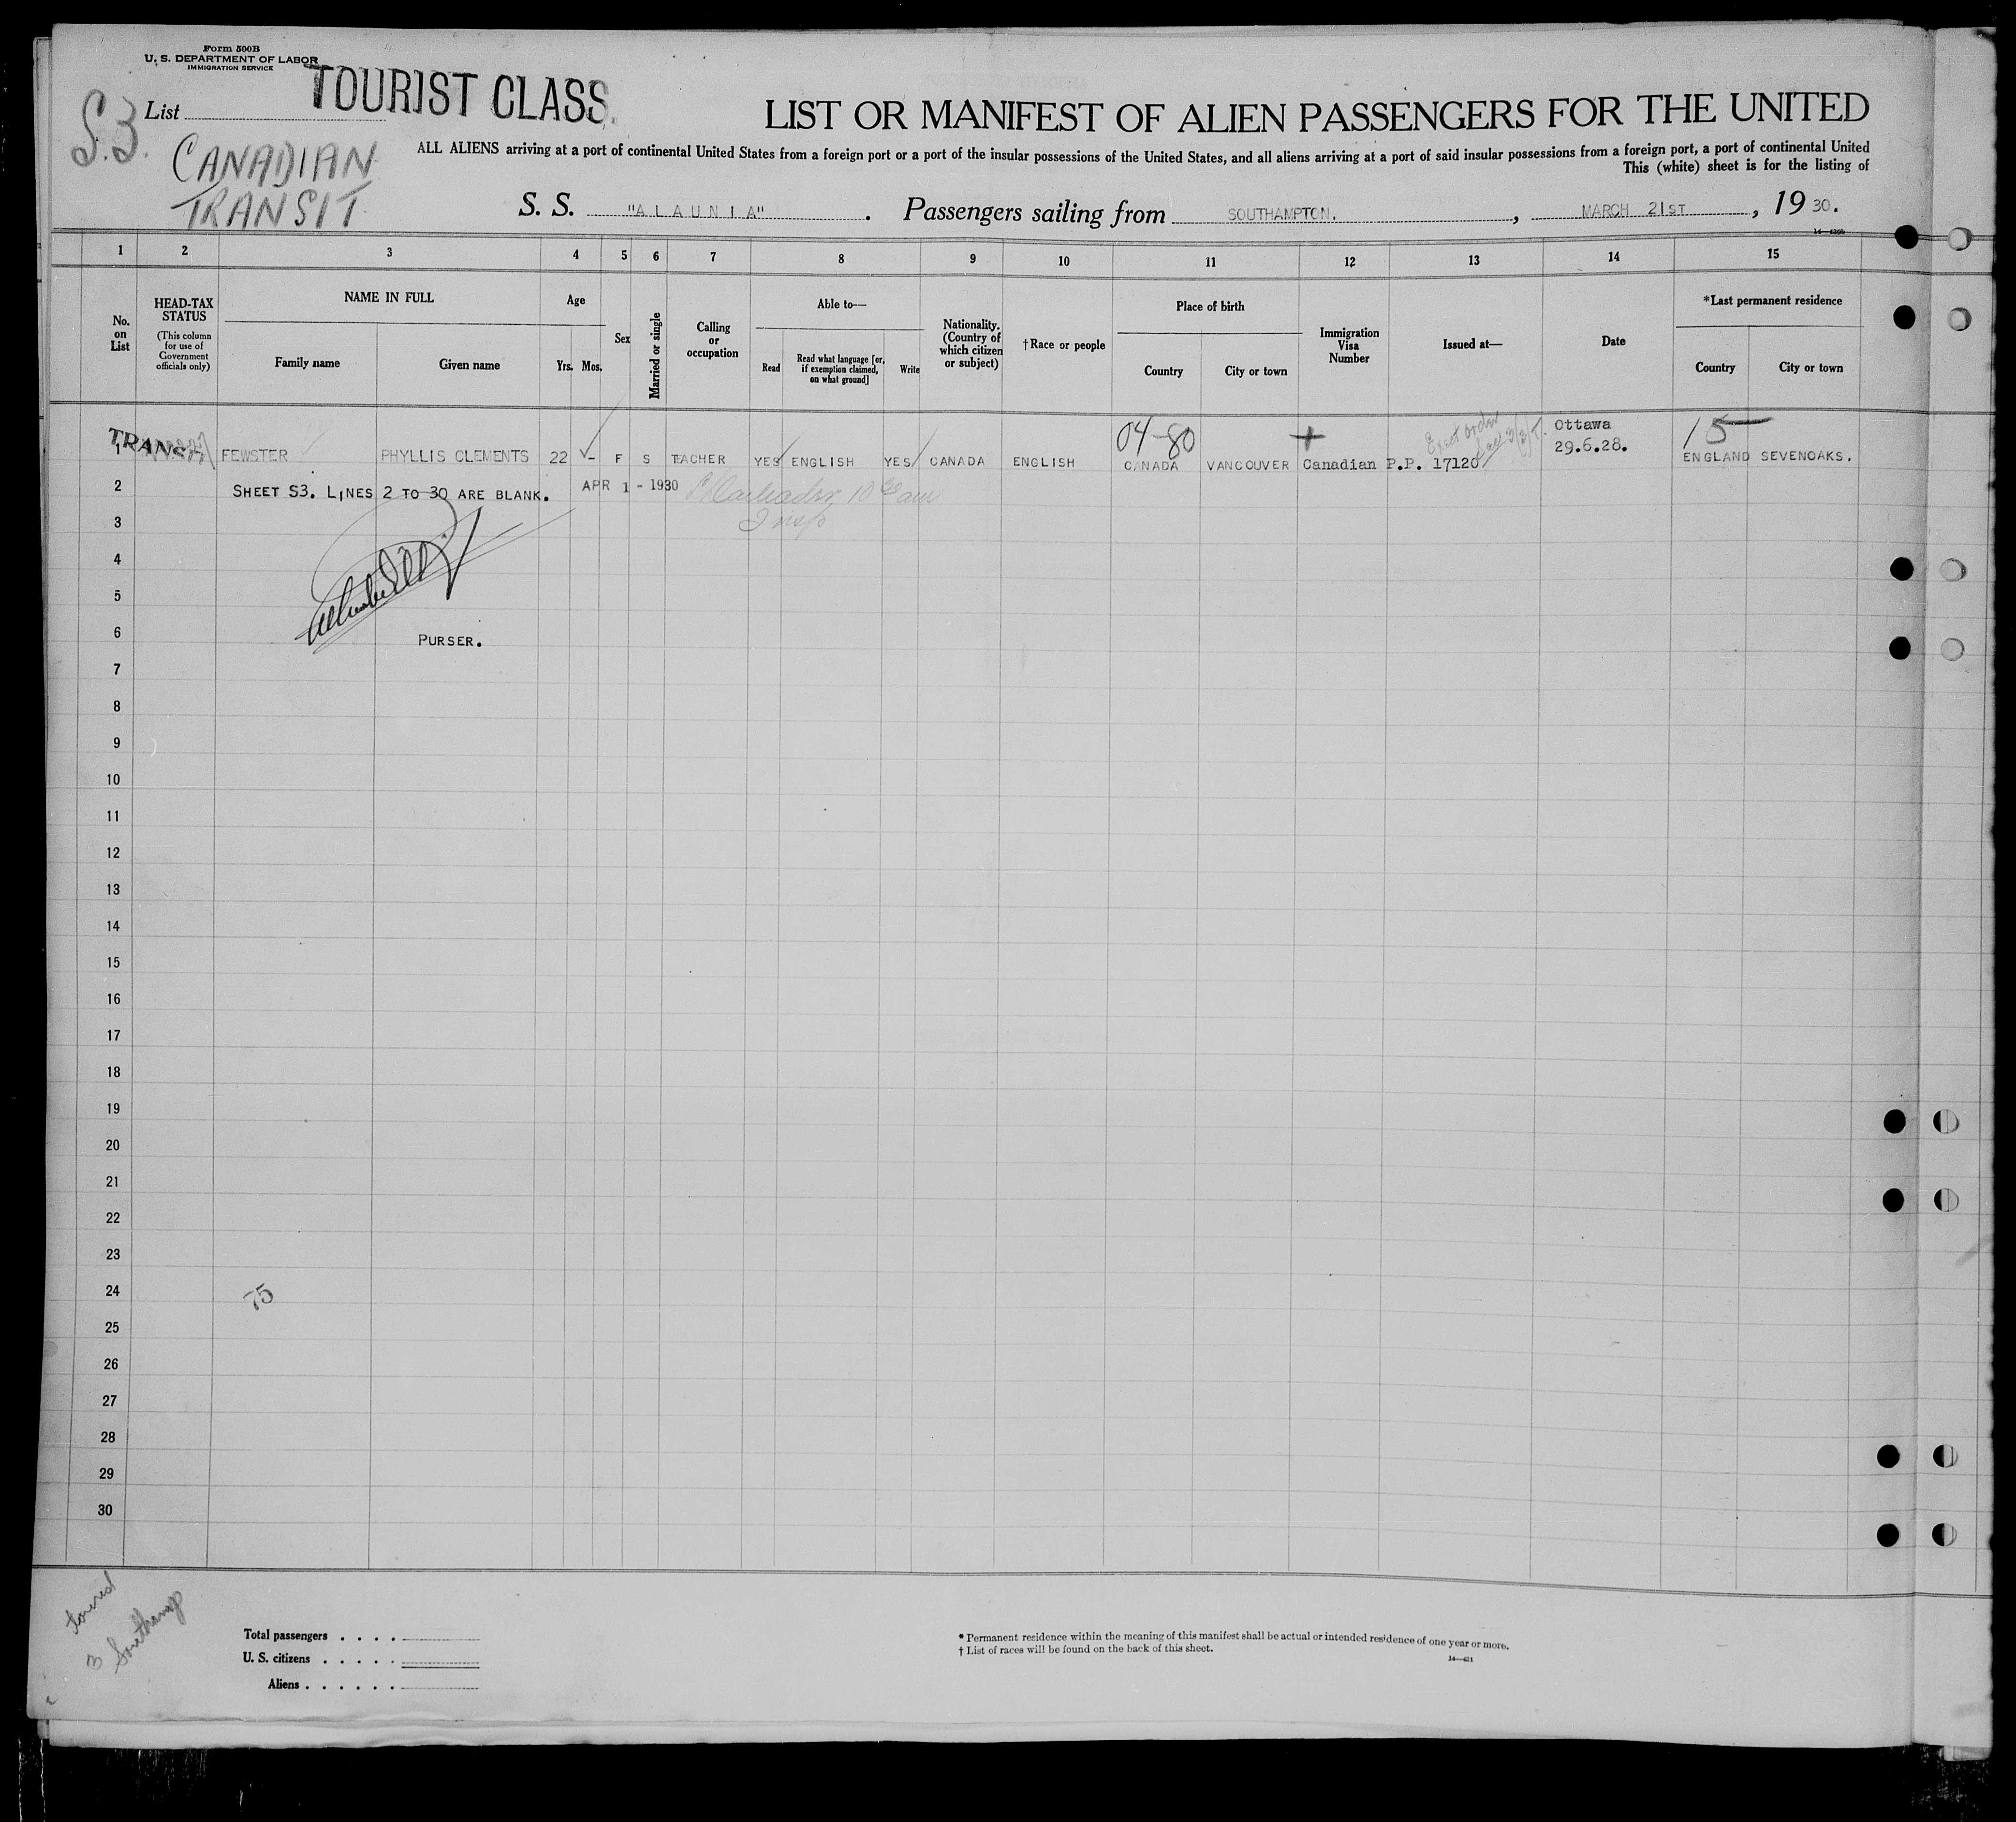 Form 500B
U. S. DEPARTMENT OF LABOR
IMMIGRATION SERVICE
TOURIST CLASS.
S.3.
List
CANADIAN
TRANSIT
LIST OR MANIFEST OF ALIEN PASSENGERS FOR THE UNITED
ALL ALIENS arriving at a port of continental United States from a foreign port or a port of the insular possessions of the United States, and all aliens arriving at a port of said insular possessions from a foreign port, a port of continental United
This (white) sheet is for the listing of
S. S. "ALAUNIA". Passengers sailing from SOUTHAMPTON., MARCH 21ST, 19 30.
1 2 3 4 5 6 7 8 9 10 11 12 13 14 15
No. on List
HEAD-TAX STATUS
(This column for use of Government officials only)
NAME IN FULL
Family name
Given name
Age
Yrs. Mos.
Sex
Married or single
Calling or occupation
Able to—
Read
Read what language [or, if exemption claimed, on what ground]
Write
Nationality. (Country of which citizen or subject)
†Race or people
Place of birth
Country
City or town
Immigration Visa Number
Issued at—
Date
*Last permanent residence
Country
City or town
04-80
15
Ottawa
29.6.28.
1 TRANSIT FEWSTER PHYLLIS CLEMENTS 22 - F S TEACHER YES ENGLISH YES CANADA ENGLISH CANADA VANCOUVER Canadian P.P. 17120 ENGLAND SEVENOAKS.
2 SHEET S3. LINES 2 TO 30 ARE BLANK. APR 1 - 1930
3
4
5
6 PURSER.
7
8
9
10
11
12
13
14
15
16
17
18
19
20
21
22
23
24
75
25
26
27
28
29
30
Total passengers
U. S. citizens
Aliens
* Permanent residence within the meaning of this manifest shall be actual or intended residence of one year or more.
† List of races will be found on the back of this sheet.
14—421